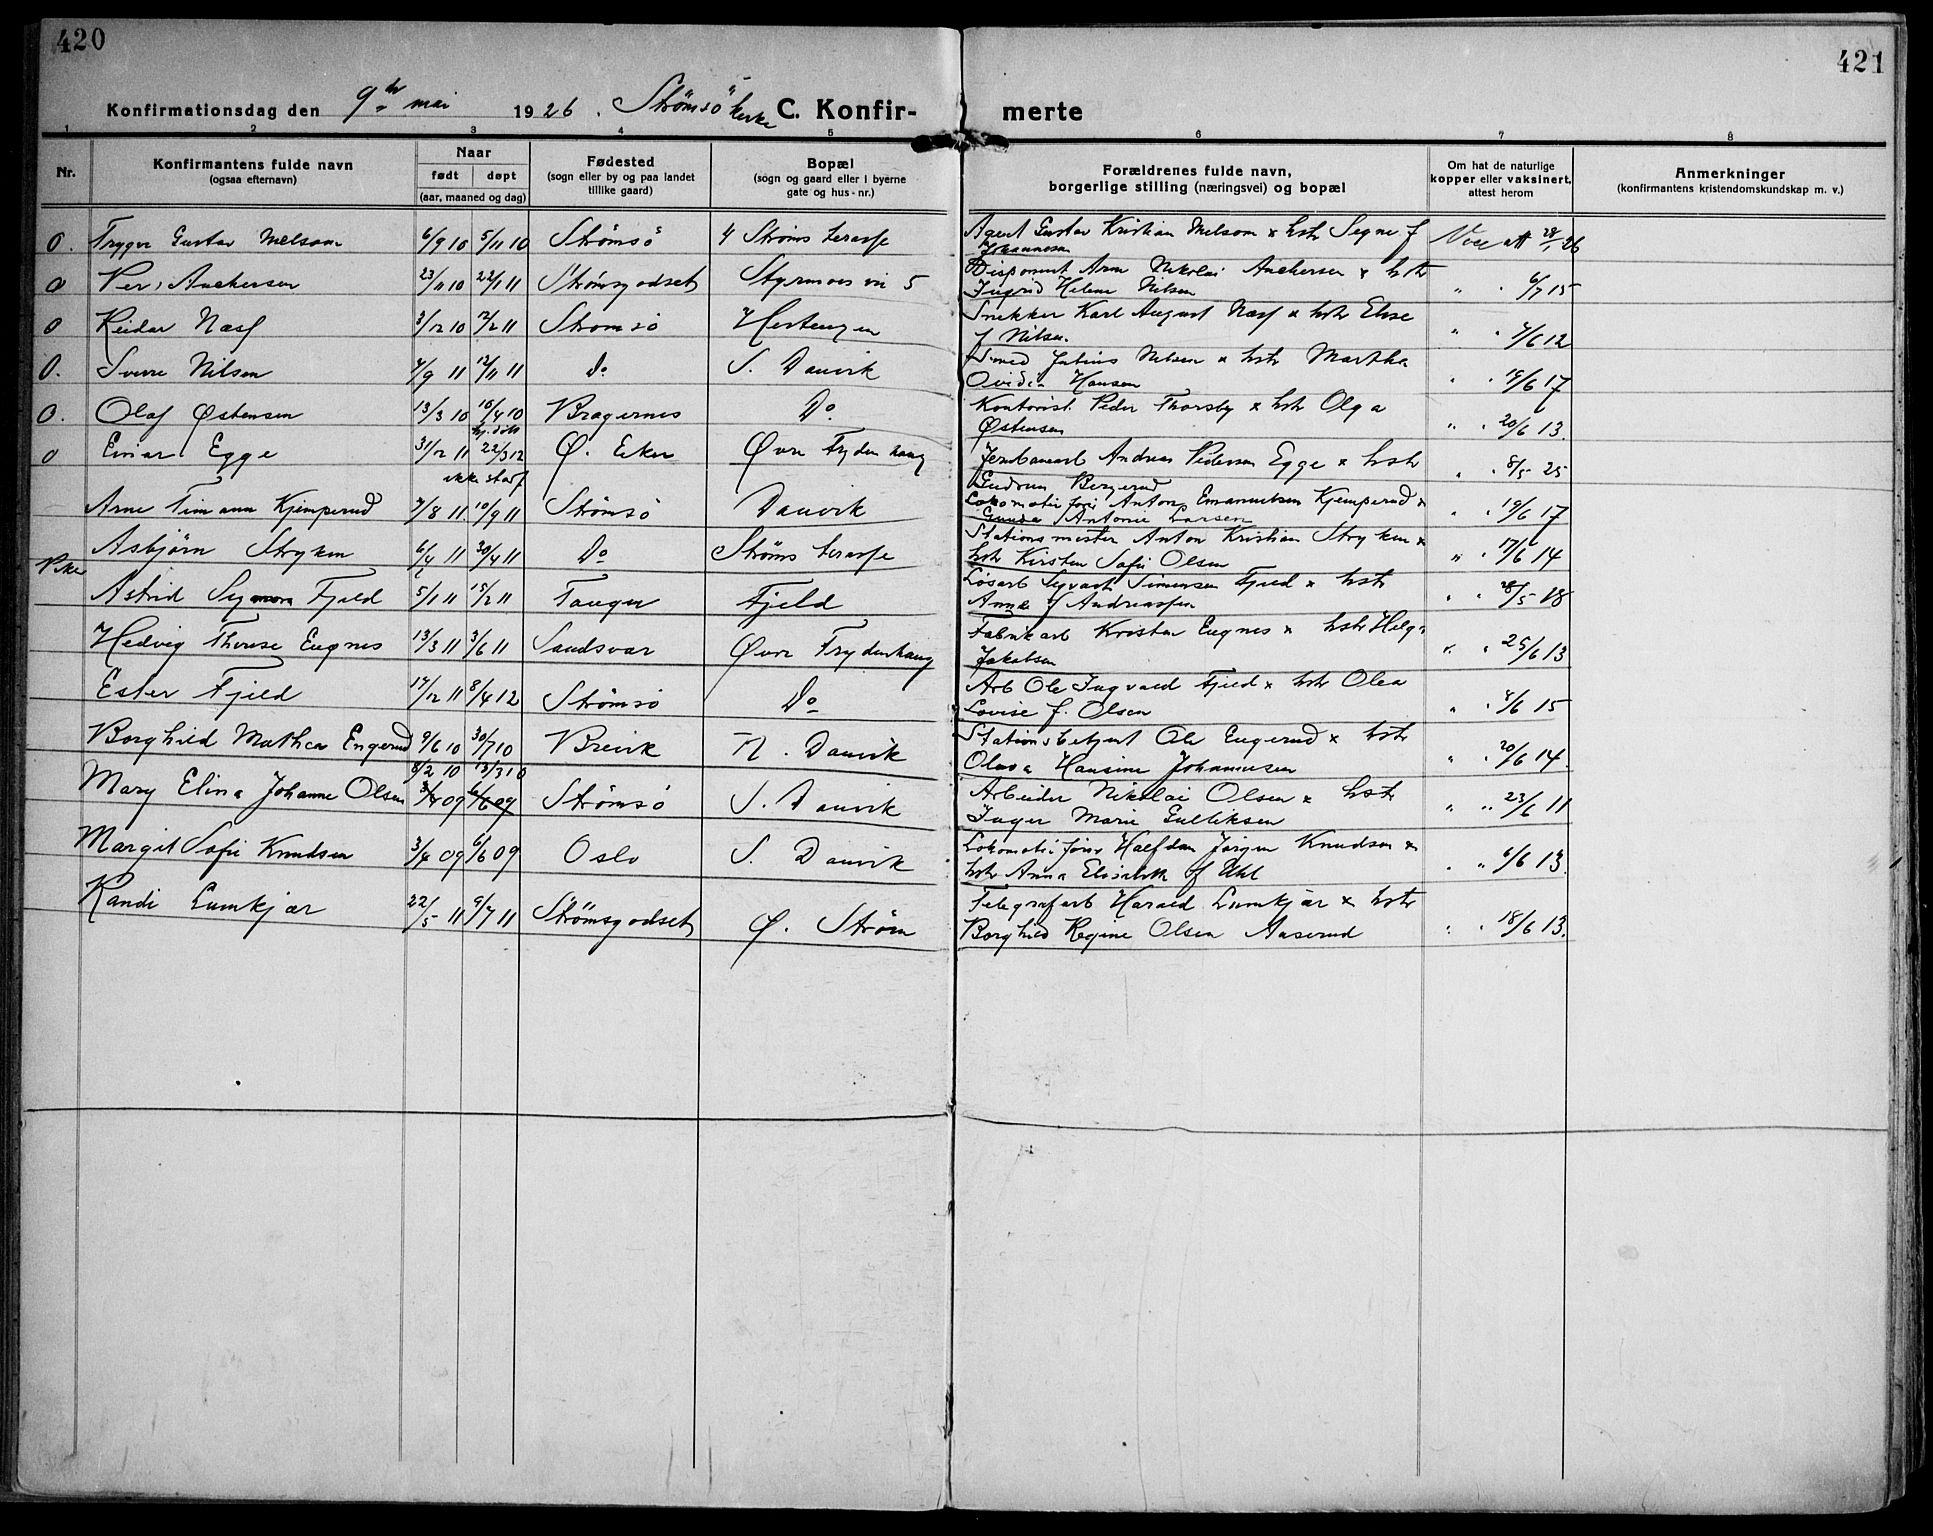 420
421
Konfirmationsdag den 9de mai 1926. Strømsö kirke C. Konfir-
merte
1 2 3 4 5 6 7 8
Nr.
Konfirmantens fulde navn
(ogsaa efternavn)
Naar
født døpt
(aar, maaned og dag)
Fødested
(sogn eller by og paa landet
tillike gaard)
Bopæl
(sogn og gaard eller i byerne
gate og hus-nr.)
Forældrenes fulde navn,
borgerlige stilling (næringsvei) og bopæl
Om hat de naturlige
kopper eller vaksinert,
attest herom
Anmerkninger
(konfirmantens kristendomskundskap m. v.)
0. Trygve Gustav Melsom 6/9 10 5/11 10 Strømsö 4 Strøms terasse Agent Gustav Kristian Melsom x hstr Signe f Vacc att 28/1 26
Johannesen
0 Per Anchersen 23/11 10 22/1 11 Strømsgodset 5 Disponent Arne Nikolai Anchersen x hstr
Ingrid Helene Nilsen " " 6/7 15
0 Reidar Næss 3/12 10 12/2 11 Strømsö Hertengen Snekker Karl August Næss x hstr Elise
f Nilsen " " 7/6 12
0. Sverre Nilsen 7/9 11 12/11 11 Do S. Danvik Smed Julius Nilsen x hstr Martha
Ovidia Hansen " " 19/6 17
0. Olaf Østensen 13/3 10 10/4 10 Bragernes Do Kontorist Peder Thorsby x hstr Olga
hj. døbt
Østensen " " 20/6 13.
0 Einar Egge 31/12 11 22/3 12 Ø. Eker Øvre Frydenhaug Jernbanearb Andreas Pedersen Egge x hstr
ikke stadf
Gudrun Bergerud " " 8/5 25
Arne Timann Kjemperud 7/8 11 10/9 11 Strømsö Danvik Lokomotivfører Anton Emanuelsen Kjemperud x
Gunda Antonie Larsen " " 19/6 17
Asbjörn Stryken 6/4 11 30/4 11 Do Strøms terasse Stationsmester Anton Kristian Stryken x
hstr Kirsten Sofie Olsen " " 17/6 14
Piker
Astrid Fjeld 5/1 11 15/2 11 Tangen Fjeld Løsarb Sigvart Simensen Fjeld x hstr
Anna f Andreassen " " 28/5 18
Hedvig Therese Engnes 13/3 11 3/6 11 Sandsvær Øvre Frydenhaug Fabrikarb Kristen Engnes x hstr Helga
Jakobsen " " 25/6 13
Ester Fjeld 17/12 11 8/4 12 Strømsö Do Arb Ole Ingvald Fjeld x hstr Olea
Lovise f. Olsen " " 8/6 15
Borghild Mathea Engerud 9/6 10 30/7 10 Brevik N. Danvik Stationsbetjent Ole Engerud x hstr
Olava Hansine Johannesen " " 20/6 14.
8/2 10 13/3 10
Mary Elina Johanne Olsen 3/4 09 6/6 09 Strømsö S. Danvik Arbeider Nikolai Olsen x hstr
Inger Marie Gulliksen " " 23/6 11
Margit Sofie Knudsen 3/4 09 6/6 09 Oslo S. Danvik Lokomotivfører Halfdan Jørgen Knudsen x
hstr Anna Elisabeth f Uhl " " 6/6 13.
Randi Lumkjær 22/5 11 9/7 11 Strømsgodset Ø. Strøm Telegrafarb Harald Lumkjær x hstr
Borghild Regine Olsen Aaserud " " 18/6 13.